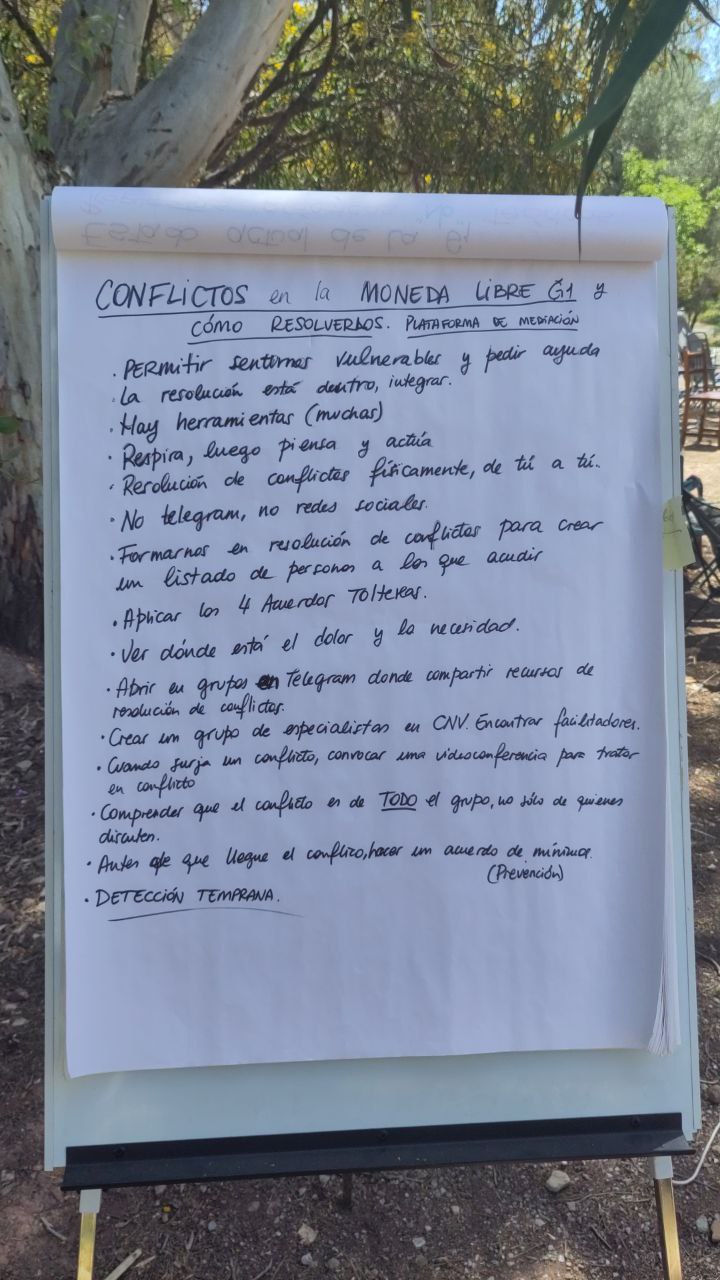 CONFLICTOS en la MONEDA LIBRE G1 y
CÓMO RESOLVERLOS. PLATAFORMA DE MEDIACIÓN
· PERMITIR sentirnos vulnerables y pedir ayuda
· La resolución está dentro, integrar.
· Hay herramientas (muchas)
· Respira, luego piensa y actúa
· Resolución de conflictos físicamente, de tú a tú.
· No telegram, no redes sociales.
· Formarnos en resolución de conflictos para crear
un listado de personas a las que acudir
· Aplicar los 4 Acuerdos Toltekas.
· Ver dónde está el dolor y la necesidad.
· Abrir en grupos en Telegram donde compartir recursos de
resolución de conflictos.
· Crear un grupo de especialistas en CNV. Encontrar facilitadores.
· Cuando surja un conflicto, convocar una videoconferencia para tratar
en conflicto
· Comprender que el conflicto es de TODO el grupo, no sólo de quienes
discuten.
· Antes de que llegue el conflico, hacer un acuerdo de mínimos.
(Prevención)
· DETECCIÓN TEMPRANA.